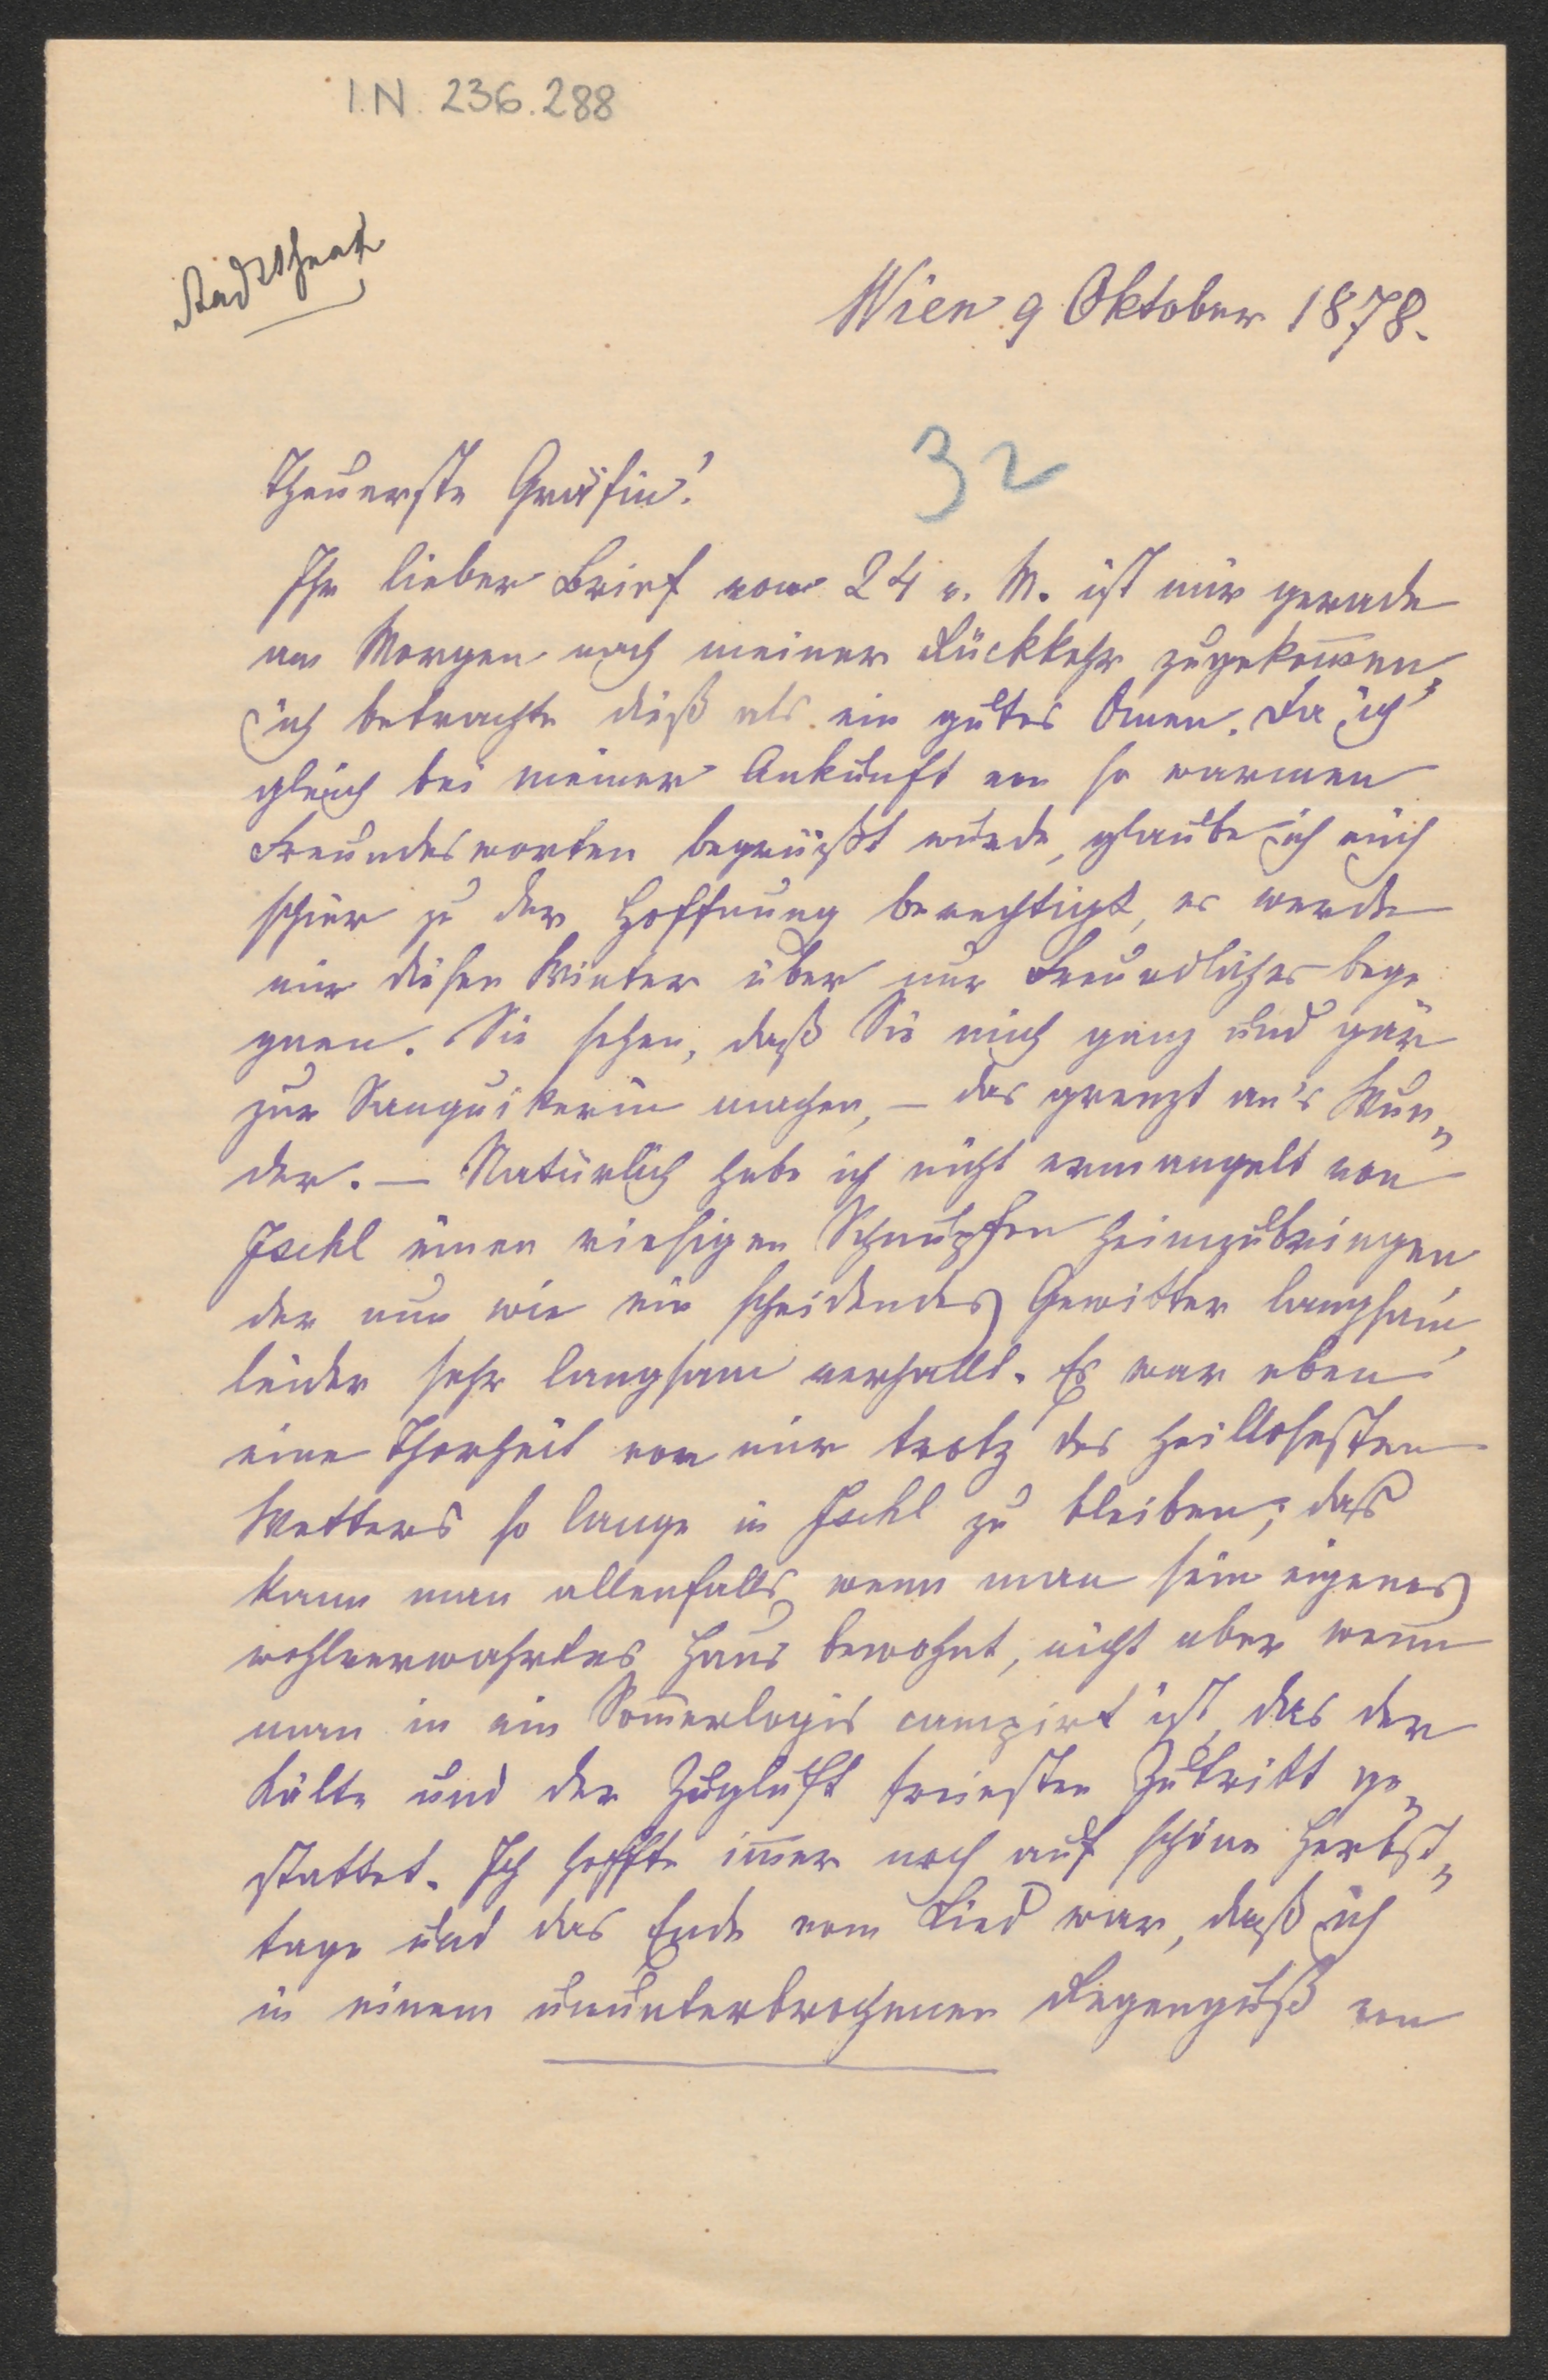 I.N. 236.288
Wien 9 Oktober 1878.
32
Theuerste Gräfin!
Ihr lieber Brief vom 24 v. M. ist mir gerade
am Morgen nach meiner Rückkehr zugekom̅en,
ich betrachte dieß als ein gutes Omen. Da ich
gleich bei meiner Ankunft von so warmen
Freundesworten begrüßt wurde, glaube ich mich
schier zu der Hoffnung berechtigt, es werde
mir diesen Winter über nur Freundliches bege
gnen. Sie sehen, daß Sie mich ganz und gar
zur Sanguikerin machen, – das grenzt an's Wun„
der. – Natürlich habe ich nicht ermangelt von
Ischl einen riesigen Schnupfen heimzubringen
der nun wie ein scheidendes Gewitter langsam,
leider sehr langsam verhallt. Es war eben
eine Thorheit von mir trotz des heillosesten
Wetters so lange in Ischl zu bleiben; das
kann man allenfalls wenn man sein eigenes
wohlverwahrtes Haus bewohnt, nicht aber wenn
man in ein Som̅erlogis campirt ist, das der
Kälte und der Zugluft freiesten Zutritt ge„
stattet. Ich hoffte im̅er noch auf schöne Herbst„
tage und das Ende vom Lied war, daß ich
in einem ununterbrochenen Regenguß von